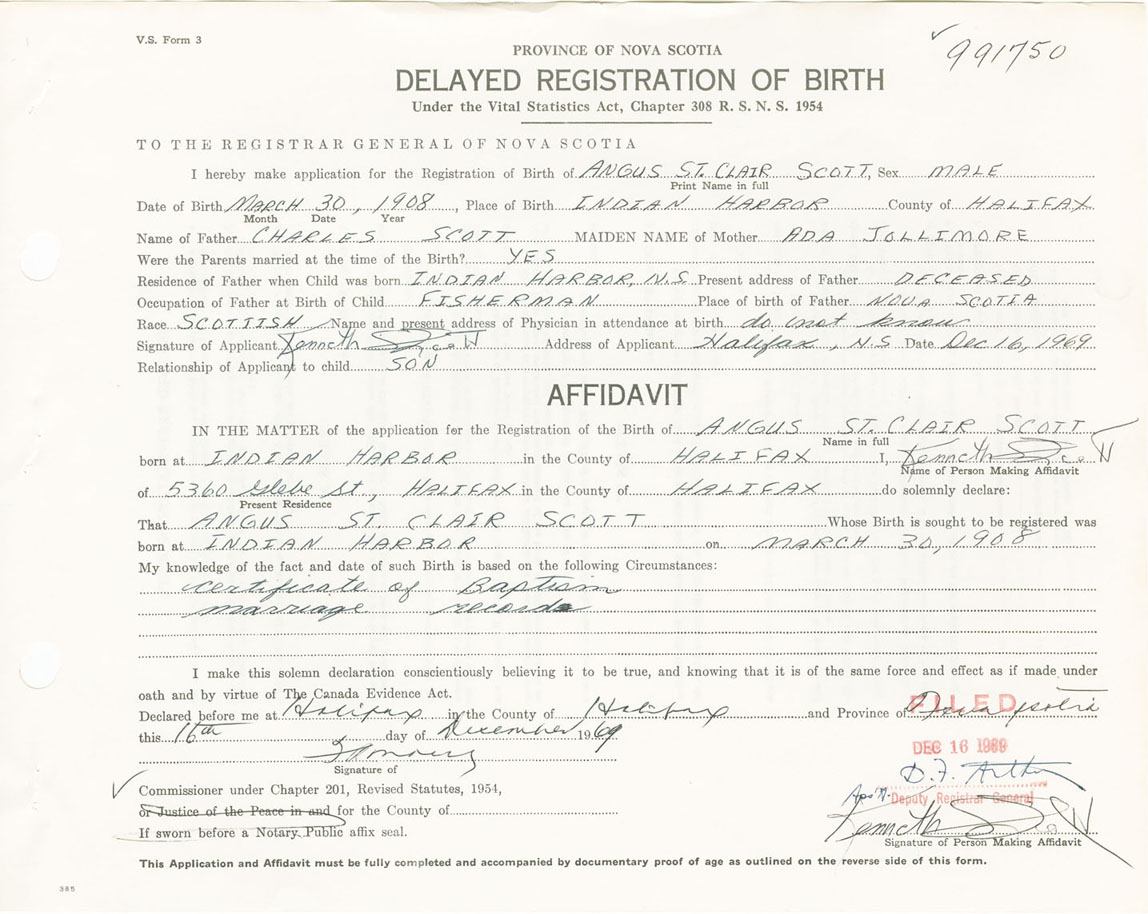 V.S. Form 3
991750
PROVINCE OF NOVA SCOTIA
DELAYED REGISTRATION OF BIRTH
Under the Vital Statistics Act, Chapter 308 R. S. N. S. 1954
TO THE REGISTRAR GENERAL OF NOVA SCOTIA
I hereby make application for the Registration of Birth of ANGUS ST. CLAIR SCOTT, Sex MALE
Print Name in full
Date of Birth MARCH 30, 1908, Place of Birth INDIAN HARBOR County of HALIFAX
Month Date Year
Name of Father CHARLES SCOTT MAIDEN NAME of Mother ADA JOLLIMORE
Were the Parents married at the time of the Birth? YES
Residence of Father when Child was born INDIAN HARBOR, N.S. Present address of Father DECEASED
Occupation of Father at Birth of Child FISHERMAN Place of birth of Father NOVA SCOTIA
Race SCOTTISH Name and present address of Physician in attendance at birth do not know
Signature of Applicant Kenneth Scott Address of Applicant Halifax, N.S Date Dec 16, 1969
Relationship of Applicant to child SON
AFFIDAVIT
IN THE MATTER of the application for the Registration of the Birth of ANGUS ST. CLAIR SCOTT
Name in full
born at INDIAN HARBOR in the County of HALIFAX I, Kenneth Scott
Name of Person Making Affidavit
of 5360 Glebe St, HALIFAX in the County of HALIFAX do solemnly declare:
Present Residence
That ANGUS ST. CLAIR SCOTT Whose Birth is sought to be registered was
born at INDIAN HARBOR on MARCH 30, 1908
My knowledge of the fact and date of such Birth is based on the following Circumstances:
certificate of Baptism
marriage records
I make this solemn declaration conscientiously believing it to be true, and knowing that it is of the same force and effect as if made under
oath and by virtue of The Canada Evidence Act.
Declared before me at Halifax in the County of Halifax and Province of Nova Scotia
FILED
this 16th day of December 1969
DEC 16 1969
Signature of
D.F. Arthur
Commissioner under Chapter 201, Revised Statutes, 1954,
Deputy Registrar General
or Justice of the Peace in and for the County of
Kenneth Scott
If sworn before a Notary Public affix seal.
Signature of Person Making Affidavit
This Application and Affidavit must be fully completed and accompanied by documentary proof of age as outlined on the reverse side of this form.
385